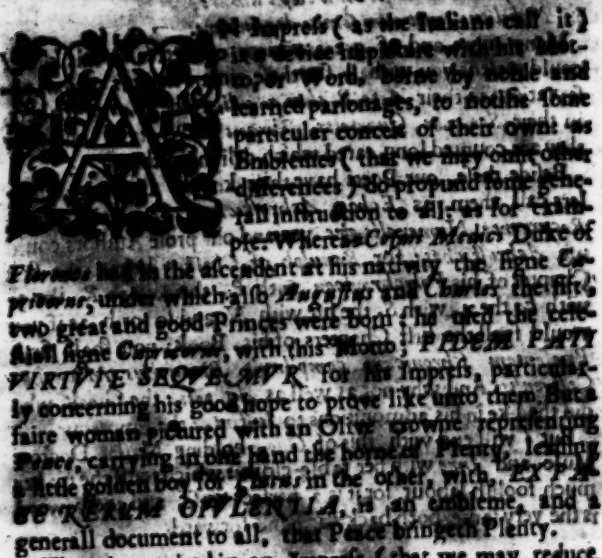 AN Impress (as the Italians call it)
is a device in picture with his Mot-
to, or Word, borne by noble and
learned parsonages, to notifie some
particular conceit of their own: as
Emblemes (that we may omit other
differences) do propound some gene-
rall instruction to all: as for exam-
ple: Whereas Cosmus Medici Duke of
Florence had in the ascendent at his nativity the signe Ca-
pricorne, under which also Augustus and Charles the fift,
two great and good Princes were born: he used the cele-
stiall signe Capricorne, with this Motto; FIDEM FATI
VIRTVTE SEQVEMVR for his Impress, particular-
ly concerning his good hope to prove like unto them. But a
faire woman pictured with an Olive crowne representing
Peace, carrying in one hand the horne of Plenty, leading
a little golden boy for Plutus in the other, with, EX PA-
CE RERUM OPVLENTIA, is an embleme, and a
generall document to all, that Peace bringeth Plenty.